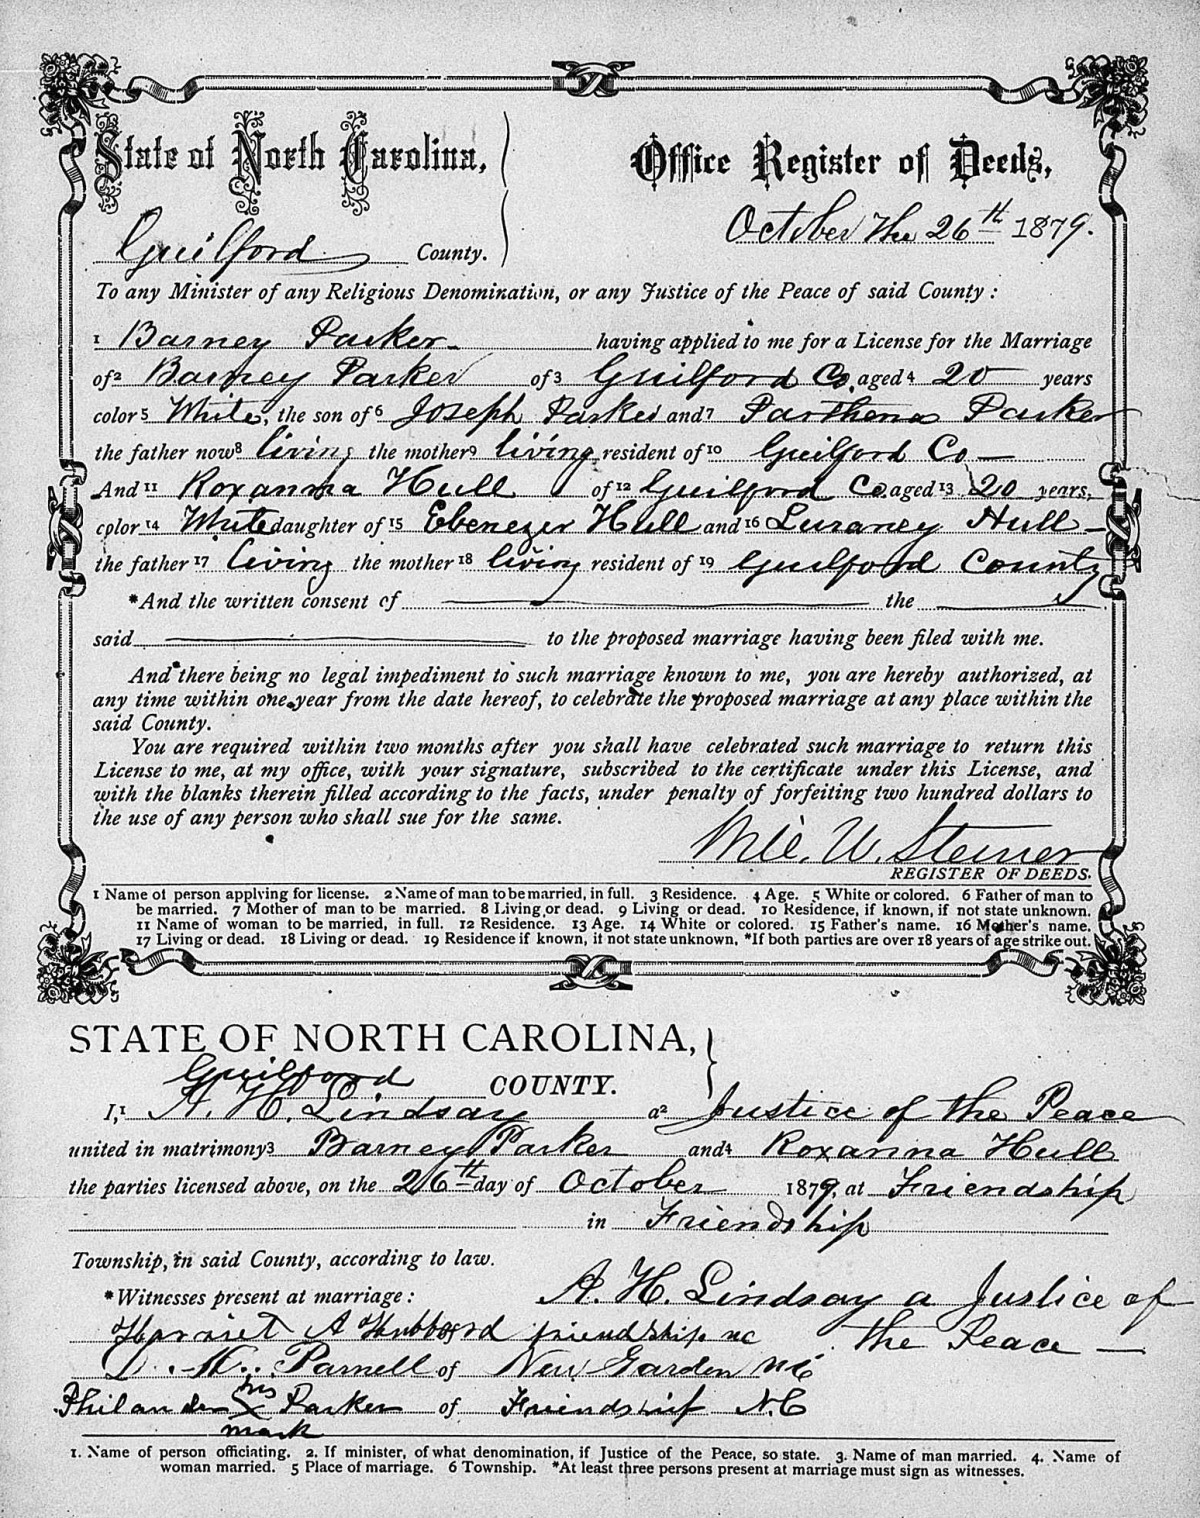 State of North Carolina,
Office Register of Deeds,
Guilford County.
October the 26th 1879.
To any Minister of any Religious Denomination, or any Justice of the Peace of said County :
1 Barney Parker having applied to me for a License for the Marriage
of2 Barney Parker of3 Guilford Co. aged4 20 years
color5 White, the son of6 Joseph Parker and7 Parthena Parker
the father now8 living the mother9 living resident of10 Guilford Co
And11 Roxanna Hull of12 Guilford Co aged13 20 years,
color14 White daughter of15 Ebenezer Hull and16 Luraney Hull
the father17 living the mother18 living resident of19 Guilford County
*And the written consent of the
said to the proposed marriage having been filed with me.
And there being no legal impediment to such marriage known to me, you are hereby authorized, at
any time within one year from the date hereof, to celebrate the proposed marriage at any place within the
said County.
You are required within two months after you shall have celebrated such marriage to return this
License to me, at my office, with your signature, subscribed to the certificate under this License, and
with the blanks therein filled according to the facts, under penalty of forfeiting two hundred dollars to
the use of any person who shall sue for the same.
W. Steiner
REGISTER OF DEEDS.
1 Name of person applying for license. 2 Name of man to be married, in full. 3 Residence. 4 Age. 5 White or colored. 6 Father of man to
be married. 7 Mother of man to be married. 8 Living or dead. 9 Living or dead. 10 Residence, if known, if not state unknown.
11 Name of woman to be married, in full. 12 Residence. 13 Age. 14 White or colored. 15 Father's name. 16 Mother's name.
17 Living or dead. 18 Living or dead. 19 Residence if known, if not state unknown. *If both parties are over 18 years of age strike out.
STATE OF NORTH CAROLINA,
Guilford COUNTY.
I,1 A. H. Lindsay a2 Justice of the Peace
united in matrimony3 Barney Parker and4 Roxanna Hull
the parties licensed above, on the 26th day of October 1879, at Friendship
in Friendship
Township, in said County, according to law.
*Witnesses present at marriage :
A. H. Lindsay a Justice of
the Peace
Harriet A Hubbard friendship nc
D. M. Parnell of New Garden NC
Philander his X mark Parker of Friendship N.C
1. Name of person officiating. 2. If minister, of what denomination, if Justice of the Peace, so state. 3. Name of man married. 4. Name of
woman married. 5 Place of marriage. 6 Township. *At least three persons present at marriage must sign as witnesses.